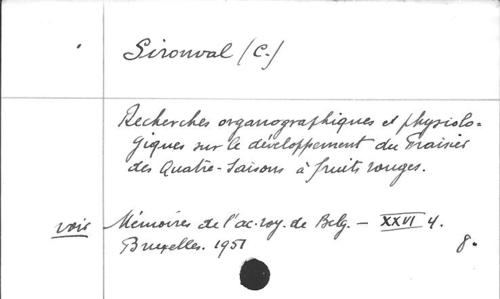 Sironval (C.)
Recherches organographiques et physiolo=
giques sur le développement du Fraisier
des Quatre-Saisons à fruits rouges.
voir Mémoires de l'ac. roy. de Belg. — XXVI 4.
Bruxelles. 1951 8.